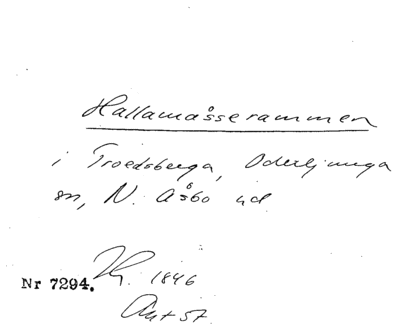 Hallamåsserammen
i Troedsberga, Oderljunga
sn, N. Åsbo hd
Nr 7294. 1846